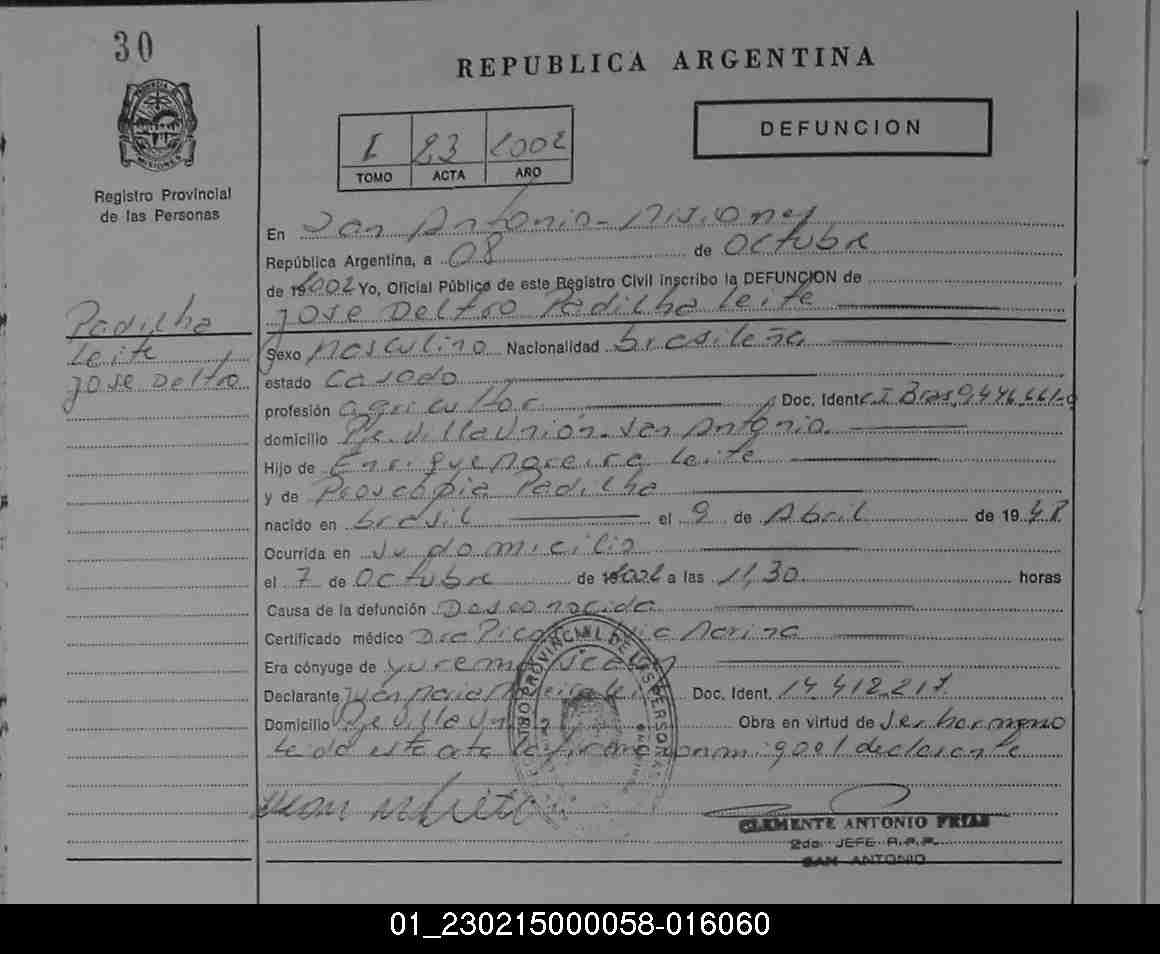 30
REPUBLICA ARGENTINA
I 23 2002
TOMO ACTA AÑO
DEFUNCION
Registro Provincial
de las Personas
Padilha
Leite
José Deltro
En San Antonio - Misiones
República Argentina, a 08 de Octubre
de 2002 Yo, Oficial Público de este Registro Civil inscribo la DEFUNCION de
José Deltro Padilha Leite
Sexo Masculino Nacionalidad brasileña
estado Casado
profesión agricultor Doc. Ident C.I Bras 9,476,661-9
domicilio Pje. Villa Unión - San Antonio
Hijo de Enrique Moreira Leite
y de Padilha
nacido en brasil el 9 de Abril de 1948
Ocurrida en su domicilio
el 7 de Octubre de 2002 a las 11,30 horas
Causa de la defunción Desconocida
Certificado médico Dra Marina
Era cónyuge de
Declarante Juan Maria Doc. Ident. 14.412.217
Domicilio Pje Villa Un Obra en virtud de ser hermano
Leida este acta la firma conmigo el declarante
CLEMENTE ANTONIO FRIAS
2do. JEFE R.P.P.
SAN ANTONIO
01_230215000058-016060